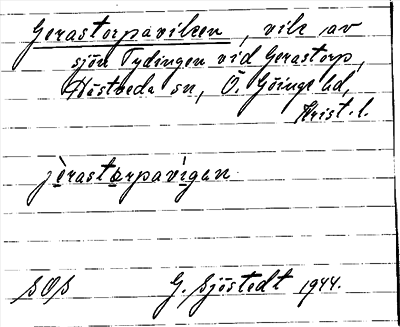 Gerastorpaviken, vik av
sjön Tydingen vid Gerastorp,
Hästveda sn, Ö. Göinge hd,
Krist. l.
jèrastərpavigan
SOS G. Sjöstedt 1944.